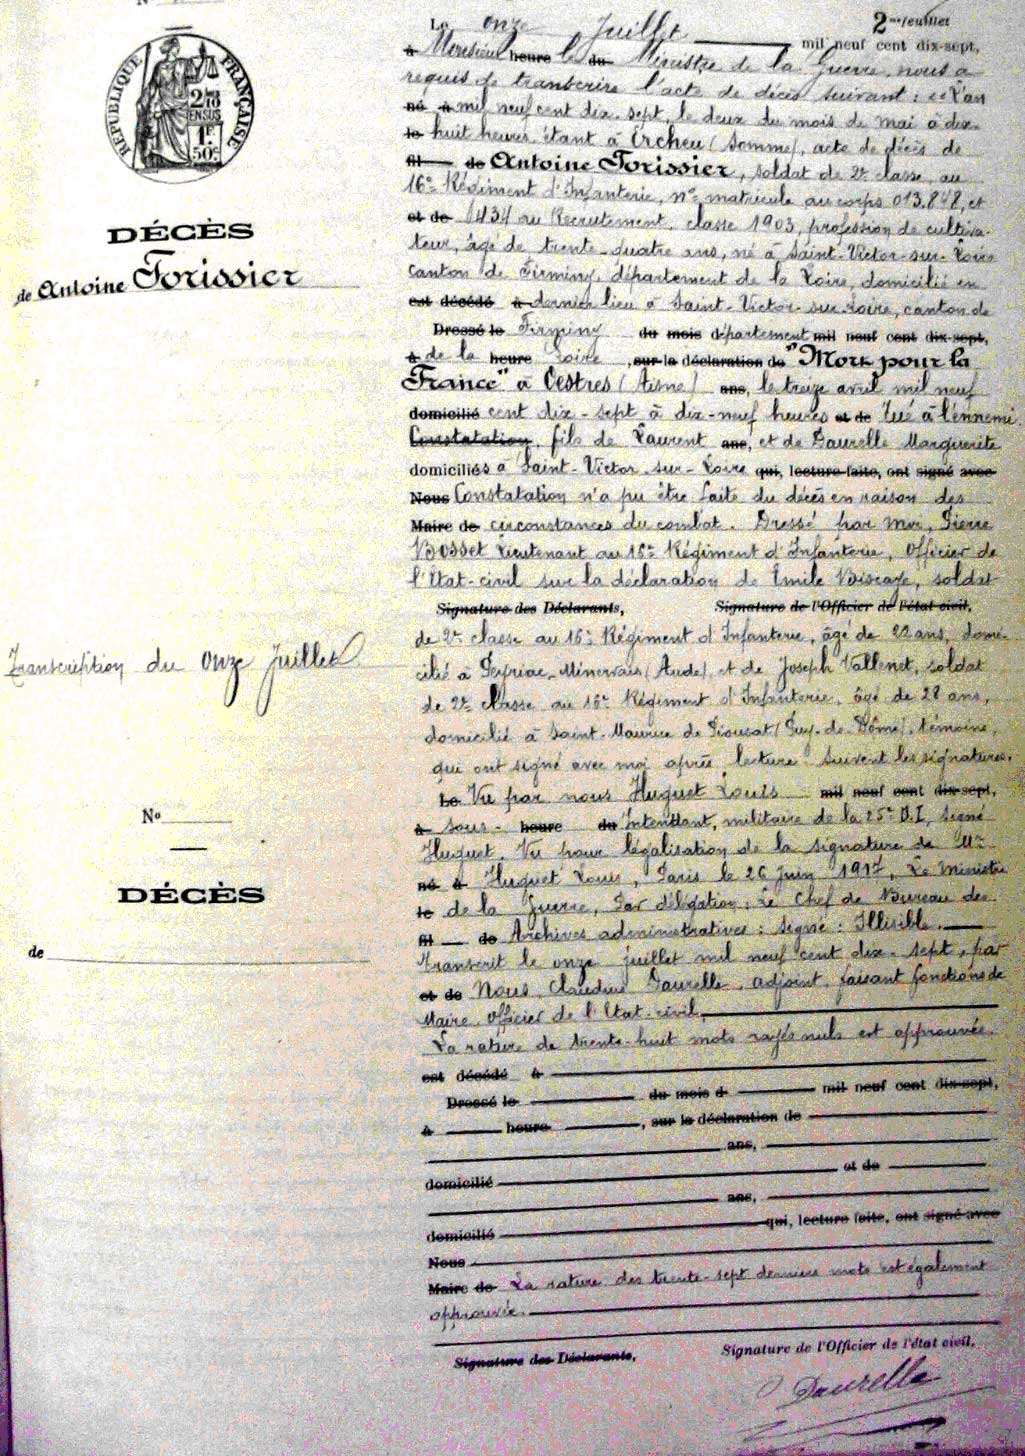 RÉPUBLIQUE FRANÇAISE
2/10
EN SUS
1F
50c
DÉCÈS
de Antoine Forissier
Transcription du onze Juillet
No
DÉCÈS
de
2me feuillet
Le onze Juillet mil neuf cent dix-sept,
à Monsieur heure le du Ministre de la Guerre, nous a
requis de transcrire l'acte de décès suivant : "L'an
né à mil neuf cent dix-sept, le deux du mois de Mai à dix-
le huit heures étant à Ercheu (Somme), acte de décès de
fil de Antoine Forissier, soldat de 2e classe au
16e Régiment d'Infanterie, no matricule au corps 013.848, et
et de 1434 au Recrutement, classe 1903, profession de cultiva-
teur, âgé de trente-quatre ans, né à Saint-Victor-sur-Loire
canton de Firminy, département de la Loire, domicilié en
est décédé à dernier lieu à Saint-Victor-sur-Loire, canton de
Dressé le Firminy du mois département mil neuf cent dix-sept,
à de la heure Loire, sur la déclaration de "Mort pour la
France" à Cestres (Aisne) ans, le treize avril mil neuf
domicilié cent dix-sept à dix-neuf heures et de Tué à l'ennemi.
Constatation, fils de Laurent ans, et de Daurelle Marguerite
domiciliés à Saint-Victor-sur-Loire qui, lecture faite, ont signé avec
Nous Constatation n'a pu être faite du décès en raison des
Maire de circonstances du combat. Dressé par moi, Pierre
Bosset Lieutenant au 16e Régiment d'Infanterie, Officier de
l'Etat-civil sur la déclaration de Emile Biscaye, soldat
Signature des Déclarants, Signature de l'Officier de l'état civil,
de 2e classe au 16e Régiment d'Infanterie, âgé de 22 ans, domi-
cilié à Peyriac-Minervois (Aude), et de Joseph Vallenet, soldat
de 2e classe au 16e Régiment d'Infanterie, âgé de 28 ans,
domicilié à Saint-Maurice de Pionsat (Puy-de-Dôme), témoins,
qui ont signé avec moi après lecture. Suivent les signatures.
Le Vu par nous Huguet Louis mil neuf cent dix-sept,
à sous- heure du Intendant, militaire de la 25e D.I, signé
Huguet. Vu pour légalisation de la signature de Mr
né à Huguet Louis, Paris le 26 Juin 1917, Le Ministre
le de la Guerre, Par délégation, Le Chef de Bureau des
fil de Archives administratives : Signé : Illisible.
Transcrit le onze juillet mil neuf cent dix-sept, par
et de Nous, Claudius Daurelle, adjoint faisant fonctions de
Maire, officier de l'Etat-civil,
La rature de trente-huit mots rayés nuls est approuvée.
est décédé à
Dressé le du mois d mil neuf cent dix-sept,
à heure, sur la déclaration de
ans,
domicilié et de
ans,
domicilié qui, lecture faite, ont signé avec
Nous
Maire de La rature des trente-sept derniers mots est également
approuvée.
Signature des Déclarants, Signature de l'Officier de l'état civil,
Daurelle